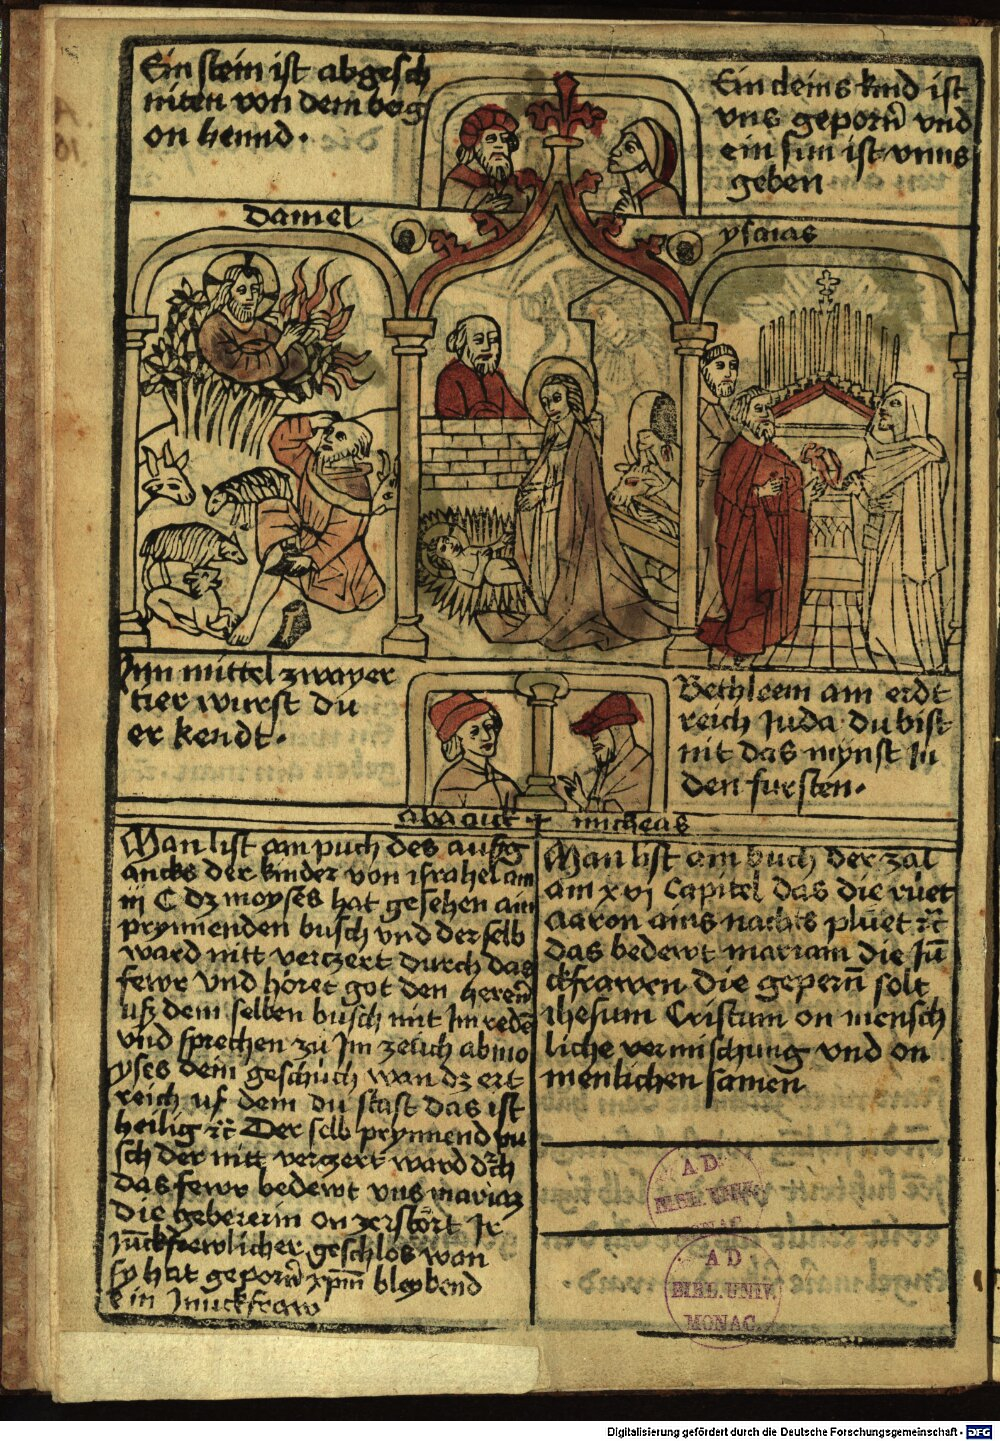 Ein stein ist abgesch
niten von dem berg
on hennd.
Ein cleins kind ist
vns geporñ vnd
ein sun ist vnns
geben
Daniel
ysaias
Inn mittel zwayer
tier wurst du
erkendt.
Bethleem am erdt
reich Juda du bist
nit das mynst Jn
den fursten.
abacuck
micheas
Man list am puch des aussg
ancks der kinder von israhel am
iii C dz moyses hat gesehen ain
prynnenden busch vnd der selb
ward nitt verczert durch das
fewr vnd horet got den hereñ
uß dem selben busch mit Im redē
vnd sprechen zu Im zeuch ab mo
yses dein geschuch wan dz ert
reich uf dem du stast das ist
heilig ꝛc̄ Der selb prynnend pu
sch der nitt verzert ward dꝛch
das fewr bedewt vns mariaz
die gebererin on zerstört Ir
Jūckfrewlicher geschlos wan
sy hat geporñ xp̄m bleybend
ein Junckfraw
Man list am buch der zal
am xvi Capitel das die rüet
aaron ains nachts plüet ꝛc̄
das bedewt mariam die Jū
ckfrawen die geperñ solt
ihesum Cristum on mensch
liche vermischung vnd on
menlichen samen
A D.
BIBL. UNIV.
MONAC.
A D
BIBL. UNIV.
MONAC.
Digitalisierung gefördert durch die Deutsche Forschungsgemeinschaft - DFG